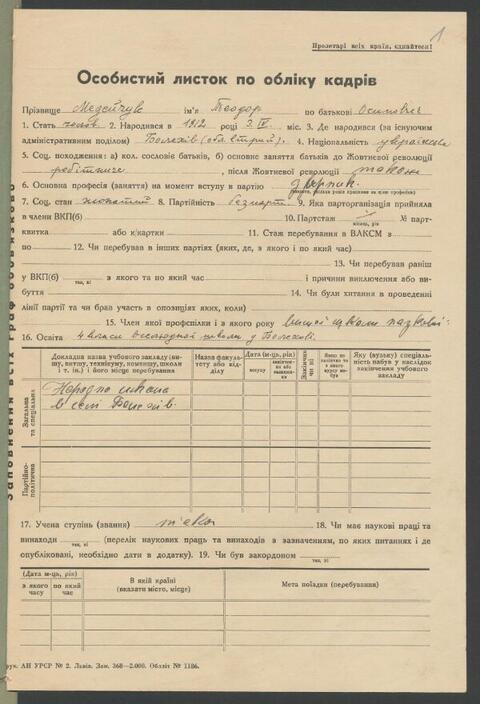 1
Пролетарі всіх країн, єднайтеся!
Особистий листок по обліку кадрів
Прізвище ім'я Теодор по батькові Осипович
1. Стать чолов. 2. Народився в 1912 році 3.IV. міс. 3. Де народився (за існуючим
адміністративним поділом) Болехів (обл. Стрий). 4. Національність українська
5. Соц. походження: а) кол. сословіє батьків, б) основне заняття батьків до Жовтневої революції
робітниче, після Жовтневої революції також
6. Основна професія (заняття) на момент вступу в партію
7. Соц. стан 8. Партійність безпарт 9. Яка парторганізація прийняла
в члени ВКП(б) 10. Партстаж № парт-
квитка або к/картки 11. Стаж перебування в ВЛКСМ з
по 12. Чи перебував в інших партіях (яких, де, з якого і по який час)
13. Чи перебував раніш
у ВКП(б) з якого та по який час і причини виключення або ви-
так, ні
буття 14. Чи були хитання в проведенні
лінії партії та чи брав участь в опозиціях яких, коли)
15. Член якої профспілки і з якого року
16. Освіта 4 класи школи у Болехові
Загальна та спеціальна
Партійно-політична
Докладна назва учбового закладу (вищу, витчу, технікуму, комвищу, школи і т. ін.) і його місце перебування
Назва факультету або відділу
Дата (м-ць, рік)
вступу
закінчення або вилення
Закінчив чи ні
Якщо не закінчив то з якого курсу вибув
Яку (вузьку) спеціальність набув у наслідок закінчення учбового закладу
Народна школа
в селі Болехів
17. Учена ступінь (звання) 18. Чи має наукові праці та
винаходи (перелік наукових праць та винаходів з зазначенням, по яких питаннях і де
так, ні
опубліковані, необхідно дати в додатку). 19. Чи був закордоном
так, ні
(Дата м-ць, рік)
з якого часу
по який час
В якій країні
(вказати місто, місце)
Мета поїздки (перебування)
рук. АН УРСР № 2. Львів. Зам. 368—2.000. Обліт № 1186.
Заповнення всіх граф обов'язково